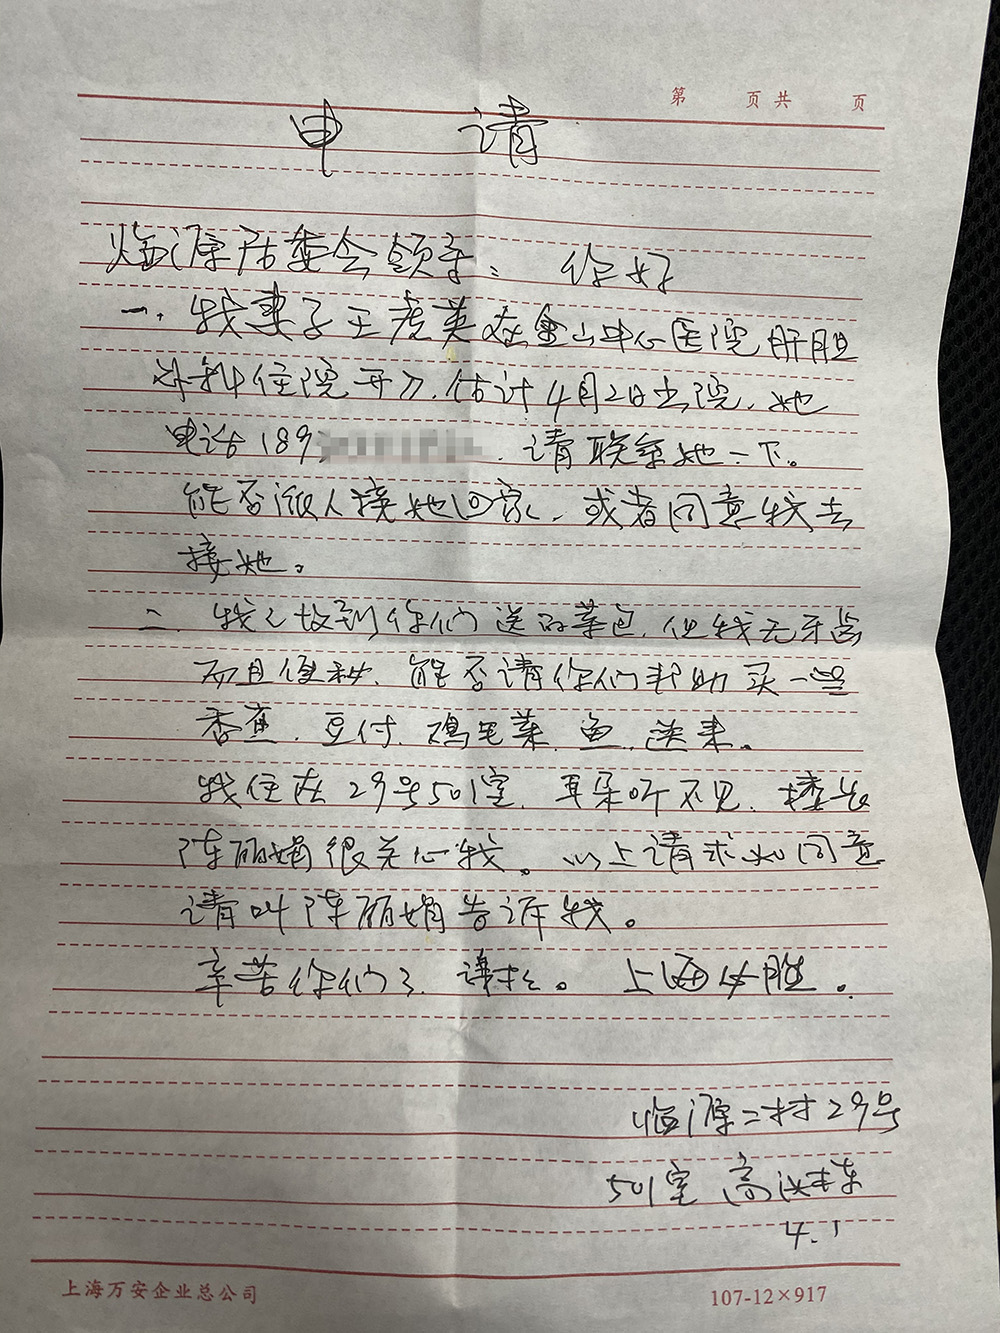 第 页共 页
申 请
临源居委会领导： 你好
一、我妻子王彦英在金山中心医院肝胆
外科住院开刀、估计4月2日出院、她
电话189 、请联系她一下。
能否派人接她回家、或者同意我去
接她。
二、我已收到你们送的菜包、但我无牙齿
而且便秘、能否请你们帮助买一些
香蕉、豆付、鸡毛菜、鱼、送来。
我住在29号501室、耳朵听不见、楼长
陈丽娟很关心我。以上请求如同意
请叫陈丽娟告诉我。
辛苦你们了、谢谢。 上海必胜。
临源二村29号
501室 高
4.1
上海万安企业总公司
107-12×917